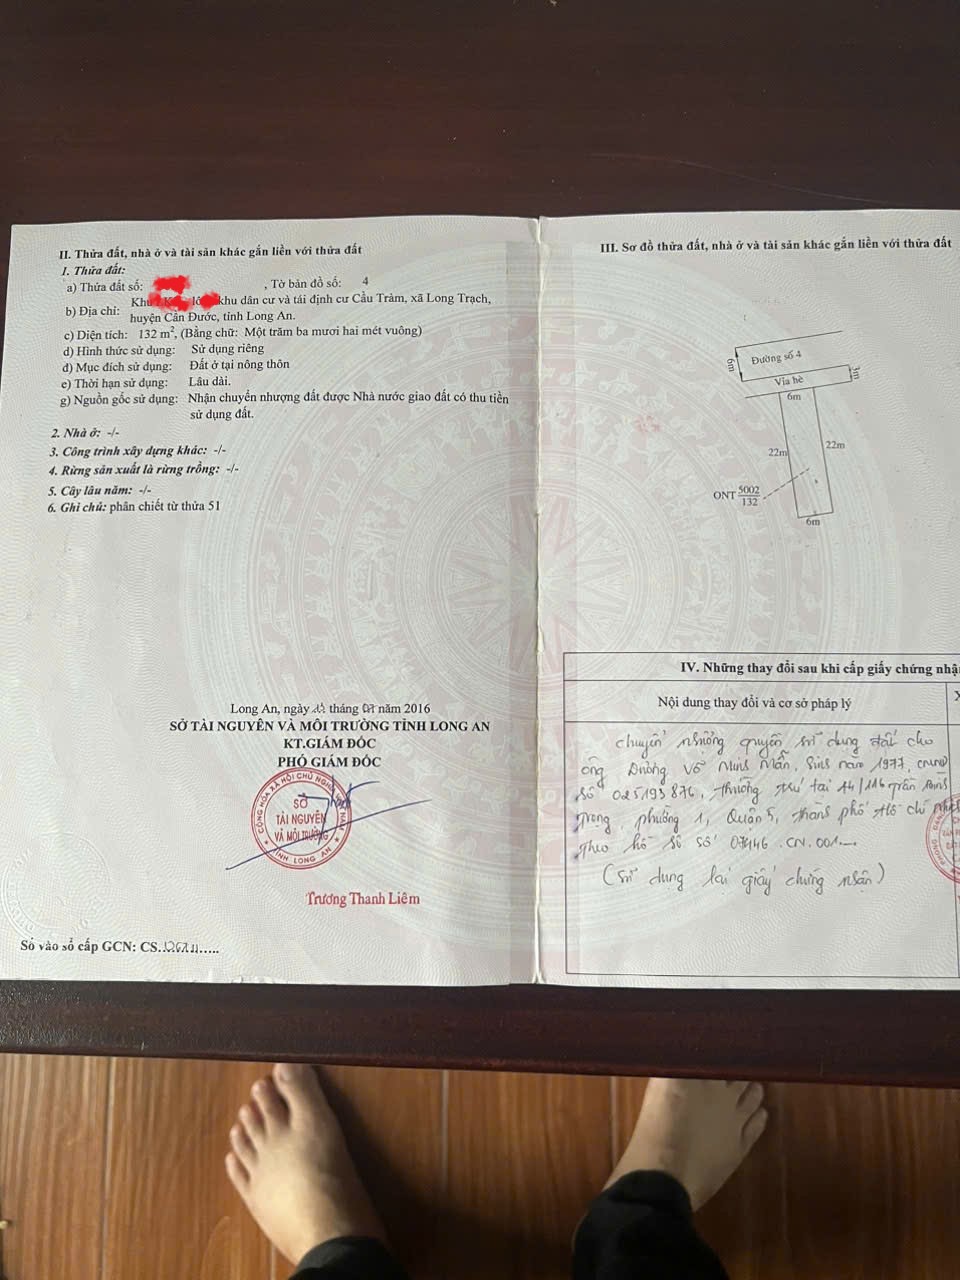 II. Thửa đất, nhà ở và tài sản khác gắn liền với thửa đất
1. Thửa đất:
a) Thửa đất số: , Tờ bản đồ số: 4
b) Địa chỉ: Khu khu dân cư và tái định cư Cầu Tràm, xã Long Trạch,
huyện Cần Đước, tỉnh Long An.
c) Diện tích: 132 m², (Bằng chữ: Một trăm ba mươi hai mét vuông)
d) Hình thức sử dụng: Sử dụng riêng
đ) Mục đích sử dụng: Đất ở tại nông thôn
e) Thời hạn sử dụng: Lâu dài.
g) Nguồn gốc sử dụng: Nhận chuyển nhượng đất được Nhà nước giao đất có thu tiền
sử dụng đất.
2. Nhà ở: -/-
3. Công trình xây dựng khác: -/-
4. Rừng sản xuất là rừng trồng: -/-
5. Cây lâu năm: -/-
6. Ghi chú: phân chiết từ thửa 51
Long An, ngày tháng 07 năm 2016
SỞ TÀI NGUYÊN VÀ MÔI TRƯỜNG TỈNH LONG AN
KT.GIÁM ĐỐC
PHÓ GIÁM ĐỐC
CỘNG HÒA XÃ HỘI CHỦ NGHĨA VIỆT NAM
SỞ
TÀI NGUYÊN
VÀ MÔI TRƯỜNG
TỈNH LONG AN
Trương Thanh Liêm
Số vào sổ cấp GCN: CS.
III. Sơ đồ thửa đất, nhà ở và tài sản khác gắn liền với thửa đất
6m
Đường số 4
3m
Vỉa hè
6m
22m
22m
ONT 5002
132
6m
IV. Những thay đổi sau khi cấp giấy chứng nhậ
Nội dung thay đổi và cơ sở pháp lý
X
Chuyển nhượng quyền sử dụng đất cho
ông Dương Võ Minh Mẫn, Sinh năm 1977, CMND
số 025193876, thường trú tại 14/116 Trần Bình
Trọng, phường 1, Quận 5, thành phố Hồ Chí Minh
Theo hồ sơ số 07446.CN.001
(Sử dụng lại giấy chứng nhận)